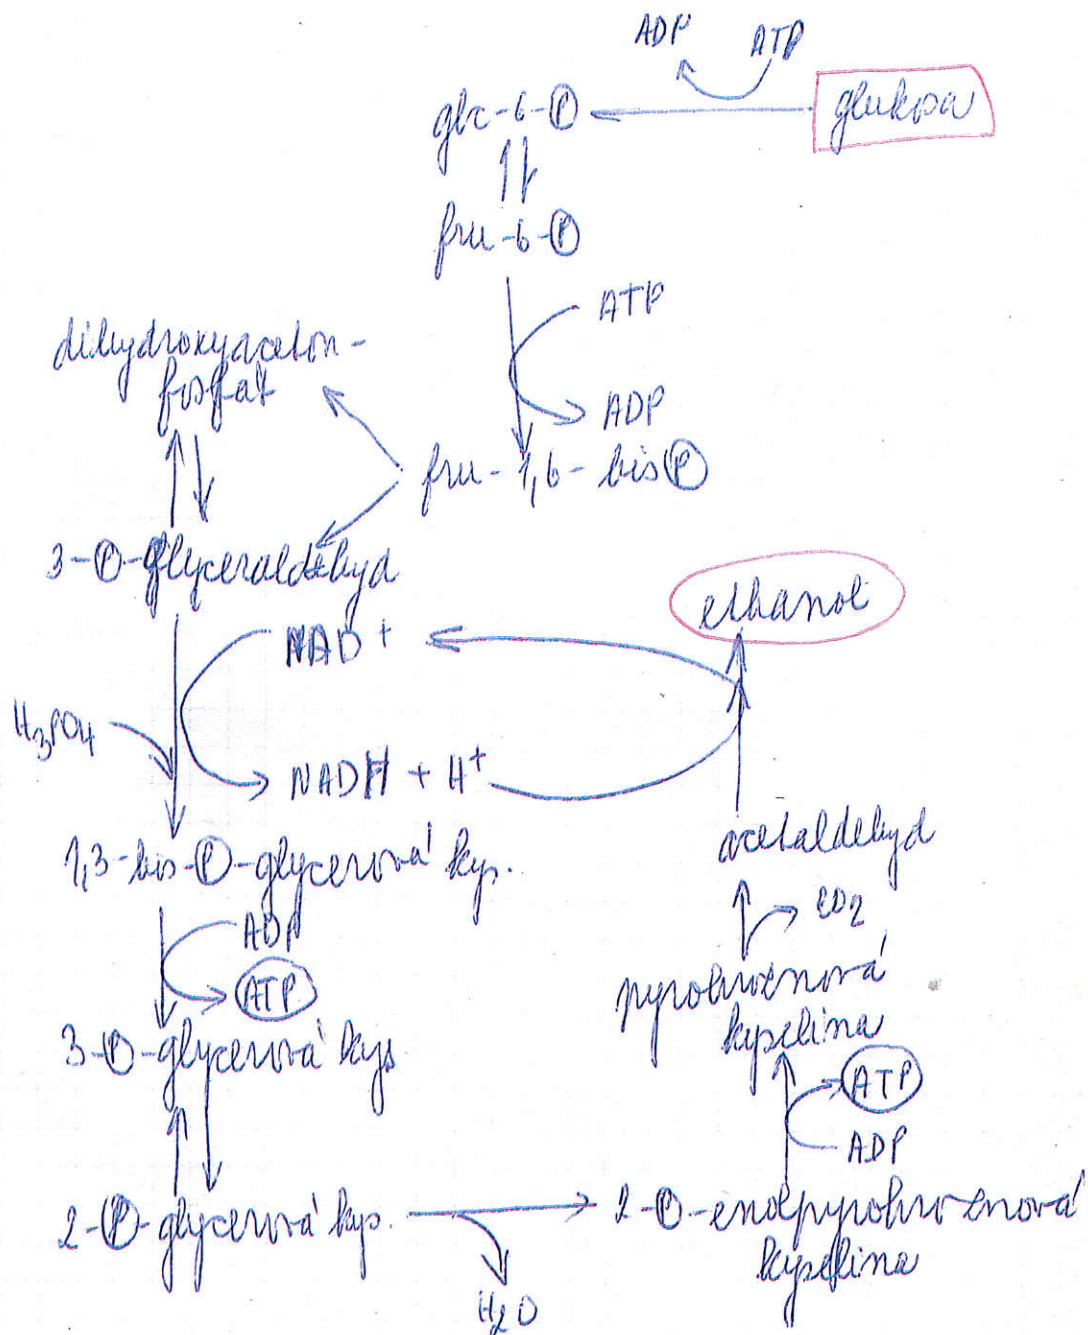 ADP ATP
glc-6-Ⓟ glukosa
fru-6-Ⓟ
ATP
dihydroxyaceton-
fosfát
ADP
fru-1,6-bisⓅ
3-Ⓟ-glyceraldehyd
ethanol
NAD+
H₃PO₄
NADH + H⁺
acetaldehyd
1,3-bis-Ⓟ-glycerová kys.
CO₂
ADP
ATP
pyrohroznová
kyselina
3-Ⓟ-glycerová kys
ATP
ADP
2-Ⓟ-glycerová kys.
2-Ⓟ-enolpyrohroznová
kyselina
H₂O